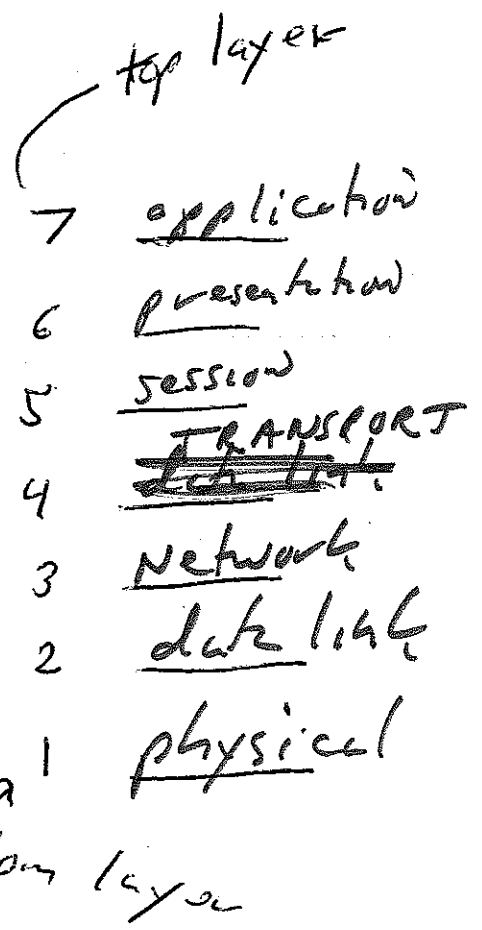 top layer
7 application
6 presentation
5 session
TRANSPORT
4 data link
3 Network
2 data link
1 physical
layer